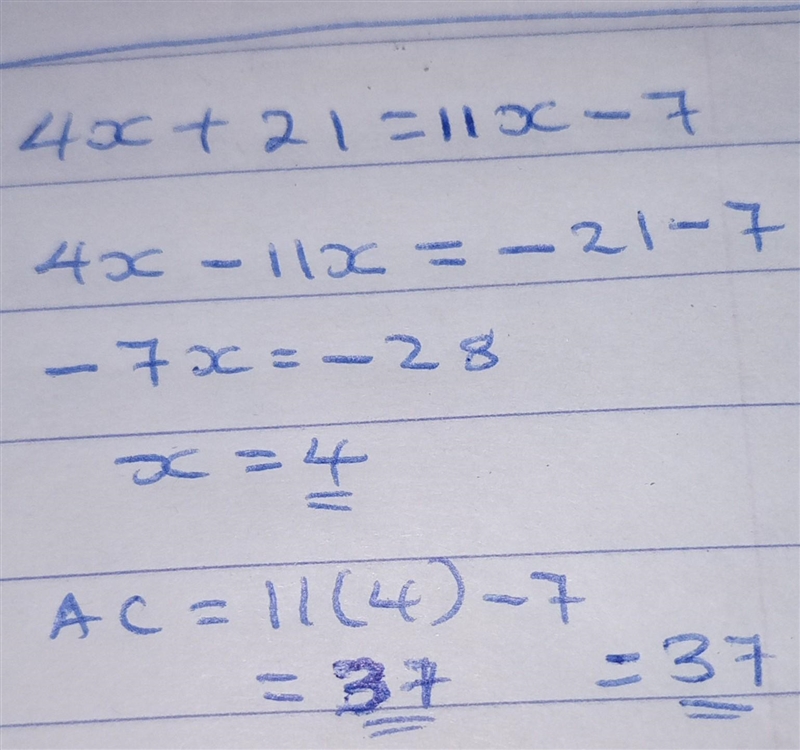 4x + 21 = 11x - 7
4x - 11x = - 21 - 7
- 7x = - 28
x = 4
AC = 11(4) - 7
= 37 = 37